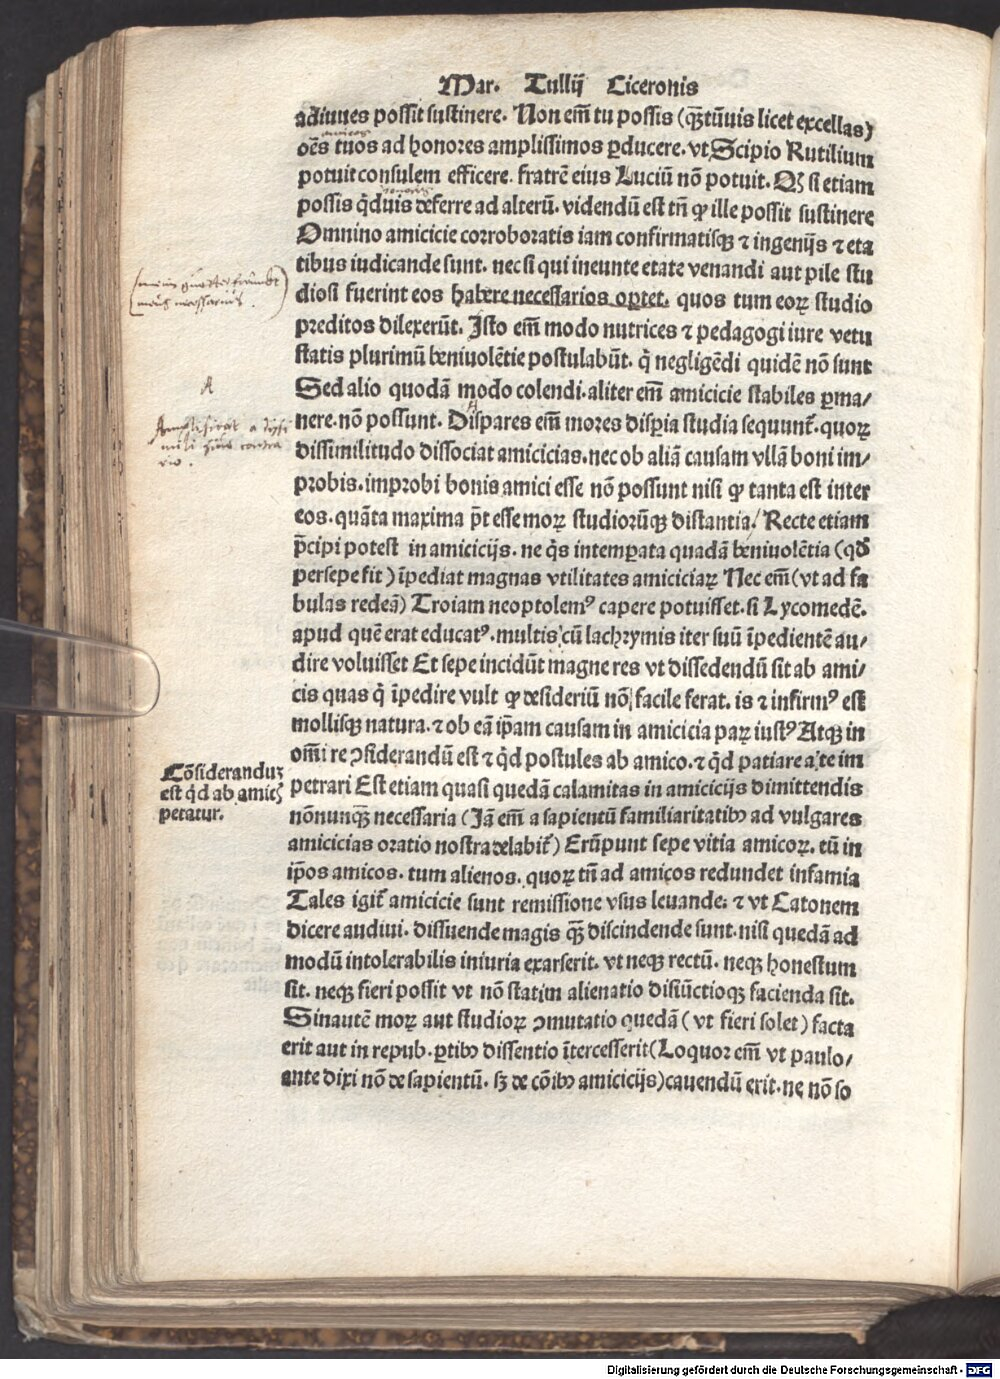 Mar. Tullij Ciceronis
adiuues possit sustinere. Non em̄ tu possis (q̄ꝫtūuis licet excellas)
amicos
oēs tuos ad honores amplissimos ꝑducere. vt Scipio Rutilium
potuit consulem efficere. fratrē eius Luciū nō potuit. Qꝫ si etiam
honoris
possis q̄duis deferre ad alterū. videndū est tn̄ qꝫ ille possit sustinere
Omnino amicicie corroboratis iam confirmatisqꝫ ⁊ ingenijs ⁊ eta
tibus iudicande sunt. nec si qui ineunte etate venandi aut pile stu
diosi fuerint eos habere necessarios oꝑtet. quos tum eoꝝ studio
preditos dilexerūt. Isto em̄ modo nutrices ⁊ pedagogi iure vetu
statis plurimū beniuolētie postulabūt. q̄ negligēdi quidē nō sunt
Sed alio quodā modo colendi. aliter em̄ amicicie stabiles ꝑma/
A
nere. nō possunt. Dispares em̄ mores disꝑia studia sequunt̄. quoꝝ
dissimilitudo dissociat amicicias. nec ob aliā causam vllā boni im/
probis. improbi bonis amici esse nō possunt nisi qꝫ tanta est inter
eos. quāta maxima p̄t esse moꝝ studiorūqꝫ distantia / Recte etiam
p̄cipi potest in amicicijs. ne q̄s intemꝑata quadā beniuolētia (qđ
persepe fit) īpediat magnas vtilitates amiciciaꝝ Nec em̄ (vt ad fa
bulas redeā) Troiam neoptolemꝰ capere potuisset. si Lycomedē.
apud quē erat educatꝰ. multis cū lachrymis iter suū īpedientē au/
dire voluisset Et sepe incidūt magne res vt dissedendū sit ab ami/
cis quas q̄ īpedire vult qꝫ desideriū nō facile ferat. is ⁊ infirmꝰ est
mollisqꝫ natura. ⁊ ob eā ip̄am causam in amicicia paꝝ iustꝰ Atqꝫ in
om̄i re ↄsiderandū est ⁊ q̄d postules ab amico. ⁊ q̄d patiare a te im
petrari Est etiam quasi quedā calamitas in amicicijs dimittendis
nōnunq̄ꝫ necessaria (Iā em̄ a sapientū familiaritatibꝫ ad vulgares
amicicias oratio nostra delabit̄) Erūpunt sepe vitia amicoꝝ. tū in
ip̄os amicos. tum alienos. quoꝝ tn̄ ad amicos redundet infamia
Tales igit̄ amicicie sunt remissione vsus leuande: ⁊ vt Catonem
dicere audiui. dissuende magis q̄ꝫ discindende sunt. nisi quedā ad
modū intolerabilis iniuria exarserit. vt neqꝫ rectū. neqꝫ honestum
sit. neqꝫ fieri possit vt nō statim alienatio disiūctioqꝫ facienda sit.
Sin autē moꝝ aut studioꝝ ↄmutatio quedā (vt fieri solet) facta
erit aut in repub. ꝑtibꝫ dissentio ītercesserit (Loquor em̄ vt paulo/
ante dixi nō de sapientū. sꝫ de cōibꝫ amicicijs) cauendū erit. ne nō so
A
Cōsideranduꝫ
est q̄d ab amicꝭ
petatur.
Digitalisierung gefördert durch die Deutsche Forschungsgemeinschaft - DFG